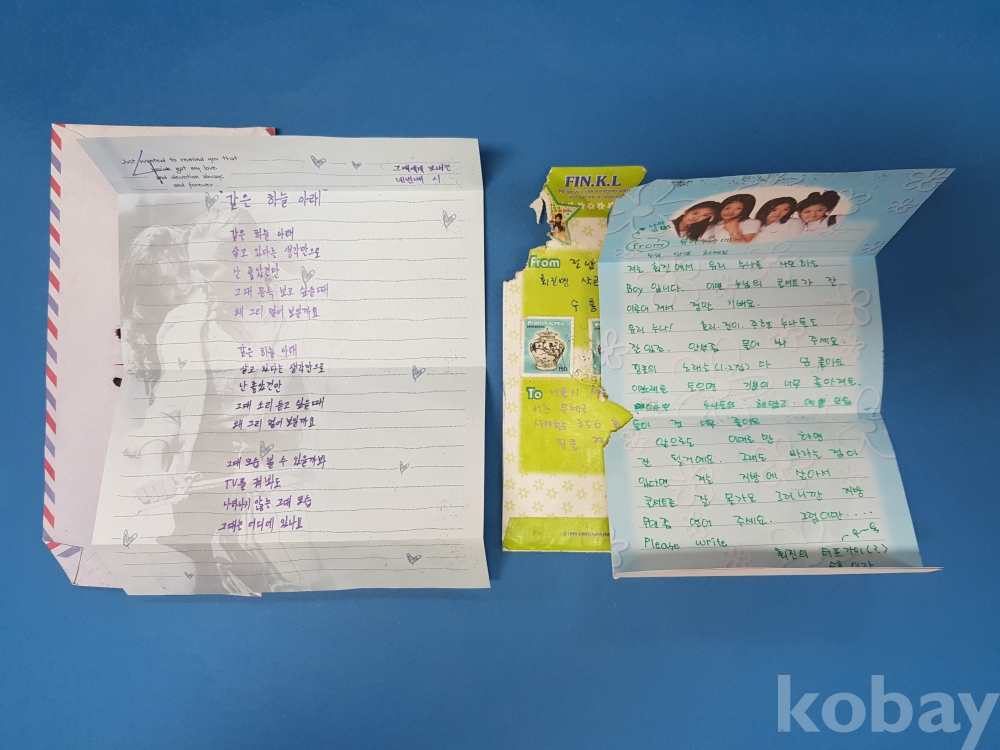 Just wanted to remind you that
you've got my love
and devotion always
and forever
그대에게 보내는
네번째 시
"같은 하늘 아래"
같은 하늘 아래
살고 있다는 생각만으로
난 좋았건만
그대 문득 보고 싶을때
왜 그리 멀어 보일까요
같은 하늘 아래
살고 있다는 생각만으로
난 좋았건만
그대 소리 듣고 싶을때
왜 그리 멀어 보일까요
그대 모습 볼 수 있을까봐
TV를 켜봐도
나타나지 않는 그대 모습
그대는 어디에 있나요
FIN.K.L
From 전남
회진면
수홍
150
To 서울시
사서함 356
핑클
From 유리누나에게
저는 회진에서 유리 누나를 사모하는
Boy 입니다. 이번 누님의 콘서트가 잔
이루어 져서 정말 기뻐요.
유리 누나! 효리.진이.주현 누나들도
잘있죠. 안부좀 물어 봐 주세요.
핑클의 노래는(1.2집) 다 넘 좋아요
이노래를 들으면 기분이 너무 좋아져요.
누나들의
들이 전 너무 좋아요
앞으로도 이대로만 하면
잘 될거에요. 그래도 바라는 점이
있다면 저는 지방에 살아서
콘서트를 잘 못가요 그러니깐 지방
무대좀 열어 주세요. 그럼이만.....
Please write
회진의 터프가이(?)
수홍이가
kobay